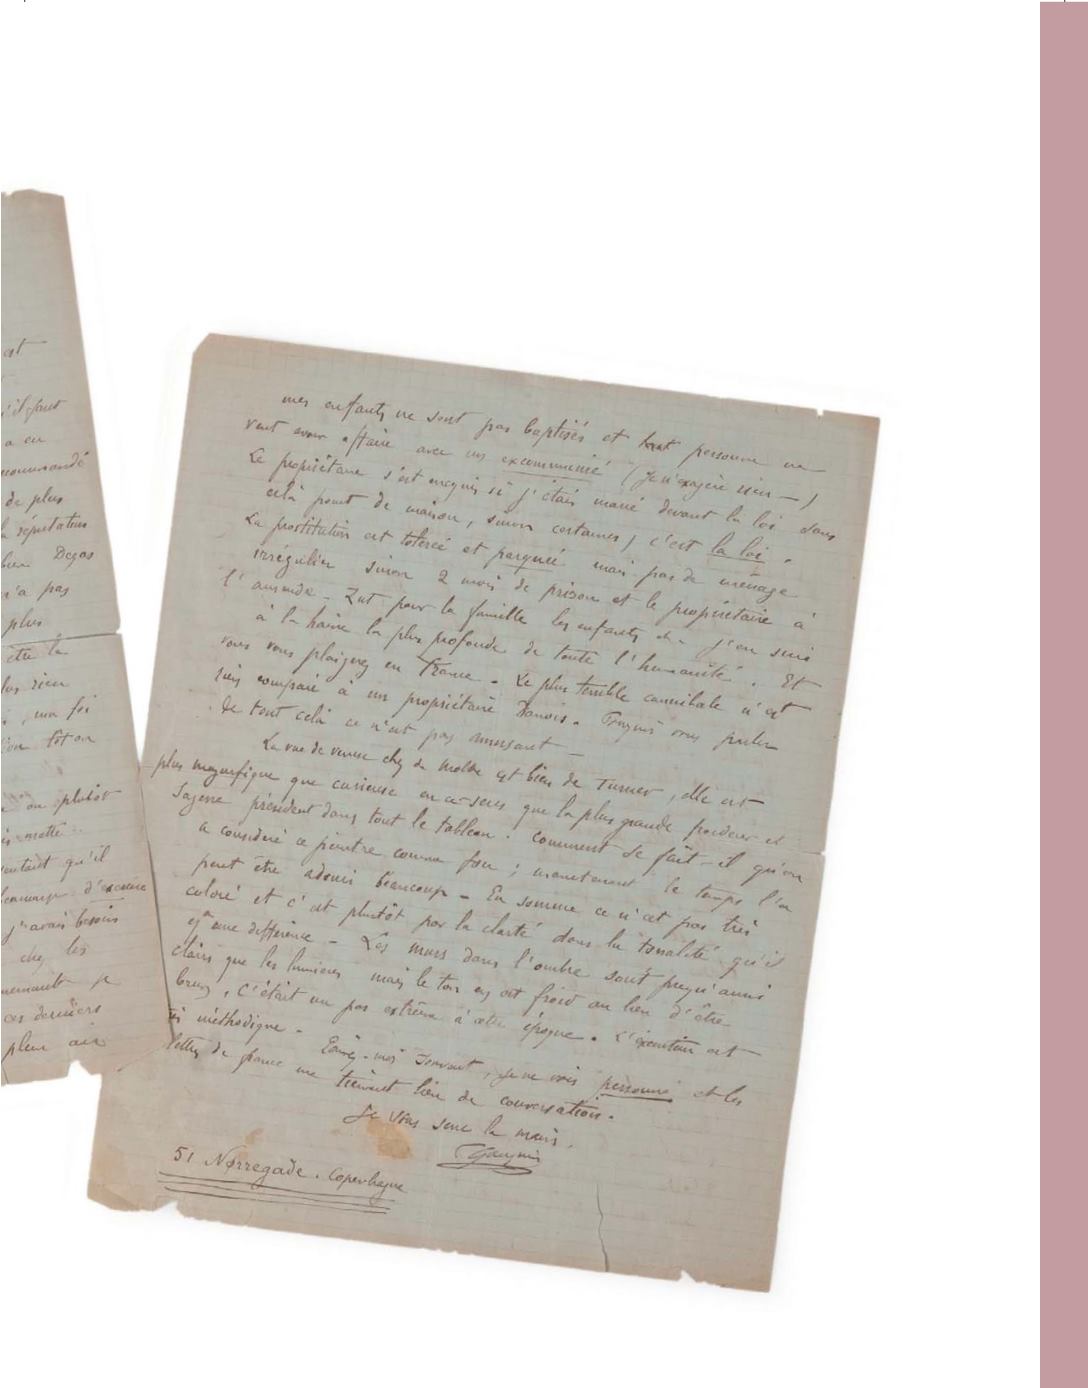 est
s'il faut
a eu
recommandé
de plus
la réputation
bien Degas
n'a pas
plus
être la
plus rien
, ma foi
ou plutôt
mettre
qu'il
beaucoup d'exercice
j'avais besoin
chez les
maintenant je
ces derniers
plein air
mes enfants ne sont pas baptisés et personne ne
veut avoir affaire avec un excommunié (Je n'exagère rien —)
Le propriétaire s'est enquis si j'étais marié devant la loi sans
celà point de maison, (sinon certaines) c'est la loi.
La prostitution est tolerée et parquée mais pas de ménage
irrégulier sinon 2 mois de prison et le propriétaire à
l'amende - Zut pour la famille les enfants j'en suis
à la haine la plus profonde de toute l'humanité. Et
vous vous plaignez en France. Le plus terrible cannibale n'est
rien comparé à un propriétaire Danois. Toujours vous parler
de tout celà ce n'est pas amusant —
La vue de venise chez de Molke est bien de Turner, elle est
plus magnifique que curieuse en ce sens que la plus grande froideur et
Sagesse président dans tout le tableau. Comment se fait-il qu'on
a considéré ce peintre comme fou ; maintenant le temps l'a
peut être adouci beaucoup - En somme ce n'est pas très
coloré et c'est plutôt par la clarté dans la tonalité qu'il
y a une différence - Les murs dans l'ombre sont presqu'aussi
clairs que les lumières mais le ton en est froid au lieu d'être
brun, c'était un pas extrême à cette époque. L'exécution est
très méthodique -
Ecrivez-moi souvent, je ne vois personne et les
lettres de france me tiennent lieu de conversation.
Je vous serre la main,
P Gauguin
51 Nørregade. Copenhague